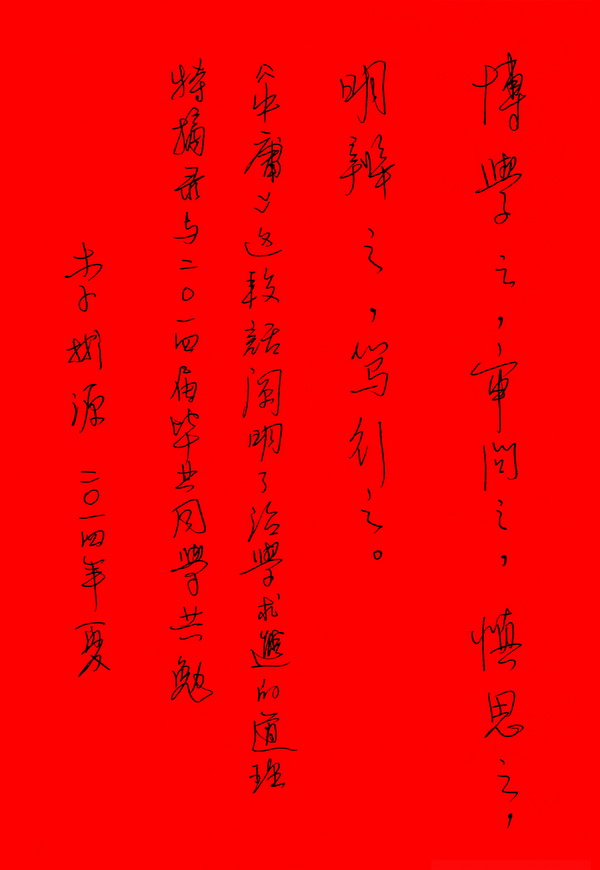 博學之，审問之，慎思之，
明辨之，笃行之。
《中庸》这段話阐明了治學求進的道理
特摘录与二〇一四届毕业同學共勉
李源 二〇一四年夏